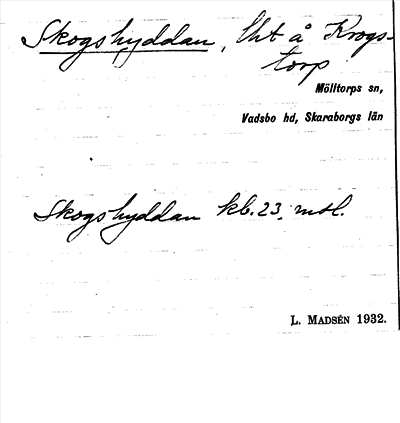 Skogshyddan, lht å Krogs-
torp
Mölltorps sn,
Vadsbo hd, Skaraborgs län
Skogshyddan kb. 23, mtl.
L. MADSÉN 1932.